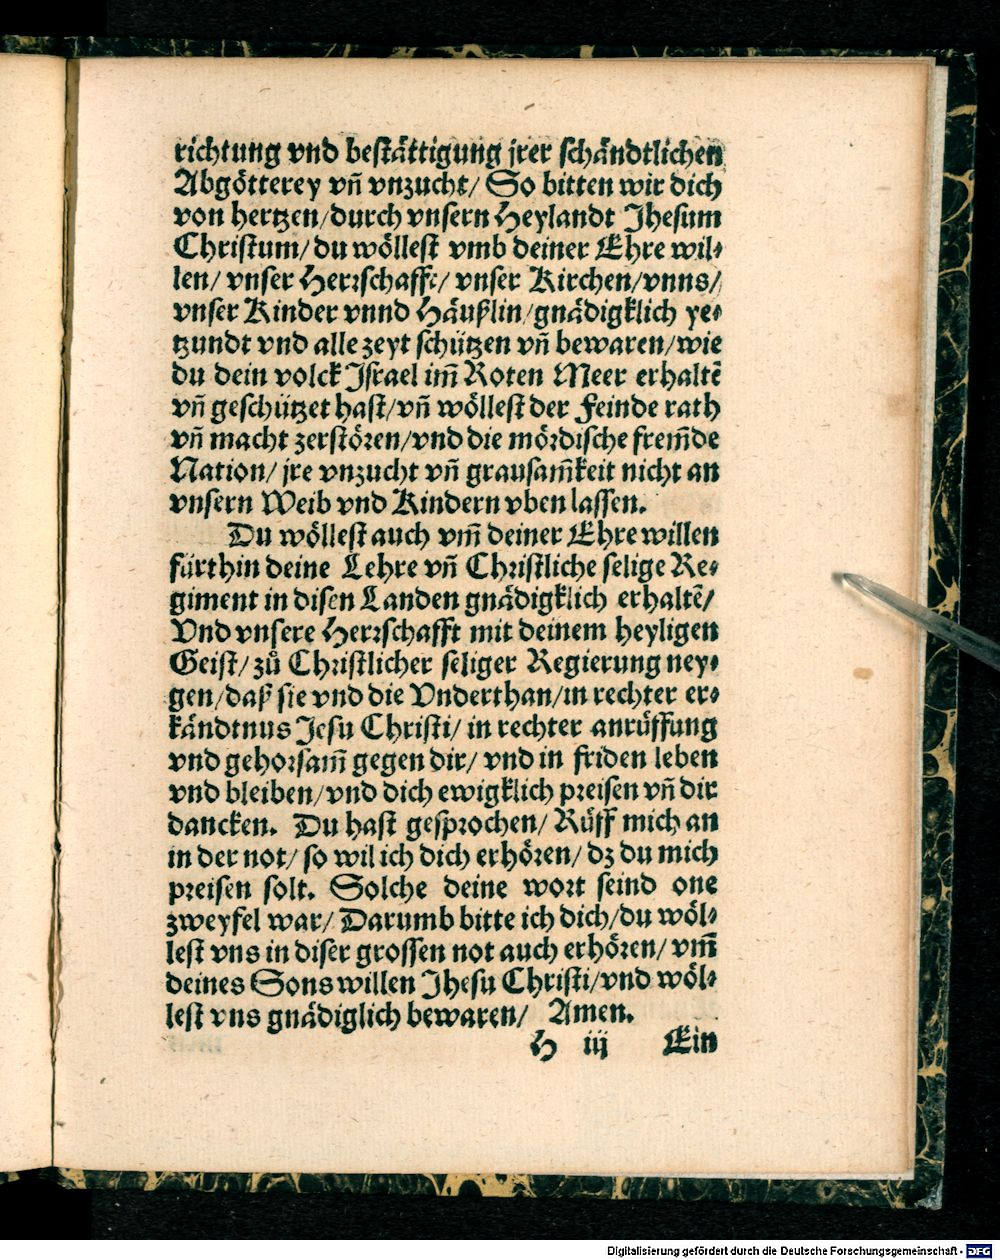 richtung vnd bestättigung jrer schändtlichen
Abgötterey vñ vnzucht/ So bitten wir dich
von hertzen/durch vnsern Heylandt Jhesum
Christum/ du wöllest vmb deiner Ehre wil⸗
len/ vnser Herrschafft/ vnser Kirchen/vnns/
vnser Kinder vnnd Häußlin/gnädigklich ye⸗
tzundt vnd alle zeyt schützen vñ bewaren/wie
du dein volck Israel im̃ Roten Meer erhaltẽ
vñ geschützet hast/vñ wöllest der Feinde rath
vñ macht zerstören/vnd die mördische frem̃de
Nation/ jre vnzucht vñ grausam̃keit nicht an
vnsern Weib vnd Kindern vben lassen.
Du wöllest auch vm̃ deiner Ehre willen
fürthin deine Lehre vñ Christliche selige Re⸗
giment in disen Landen gnädigklich erhaltẽ/
Vnd vnsere Herrschafft mit deinem heyligen
Geist/ zů Christlicher seliger Regierung ney⸗
gen/daß sie vnd die Vnderthan/in rechter er⸗
kändtnus Jesu Christi/ in rechter anrüffung
vnd gehorsam̃ gegen dir/ vnd in friden leben
vnd bleiben/vnd dich ewigklich preisen vñ dir
dancken. Du hast gesprochen/ Rüff mich an
in der not/ so wil ich dich erhören/ dz du mich
preisen solt. Solche deine wort seind one
zweyfel war/ Darumb bitte ich dich/du wöl⸗
lest vns in diser grossen not auch erhören/ vm̃
deines Sons willen Jhesu Christi/vnd wöl⸗
lest vns gnädiglich bewaren/ Amen.
H iij Ein
Digitalisierung gefördert durch die Deutsche Forschungsgemeinschaft - DFG